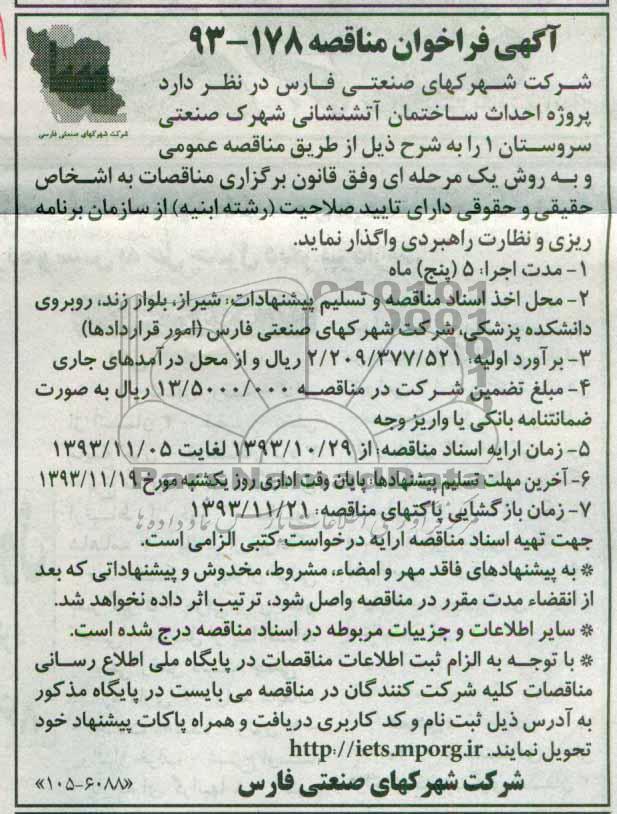 آگهی فراخوان مناقصه ۱۷۸-۹۳
شرکت شهرکهای صنعتی فارس
شرکت شهرکهای صنعتی فارس در نظر دارد
پروژه احداث ساختمان آتشنشانی شهرک صنعتی
سروستان ۱ را به شرح ذیل از طریق مناقصه عمومی
و به روش یک مرحله ای وفق قانون برگزاری مناقصات به اشخاص
حقیقی و حقوقی دارای تایید صلاحیت (رشته ابنیه) از سازمان برنامه
ریزی و نظارت راهبردی واگذار نماید.
۱- مدت اجرا: ۵ (پنج) ماه
۲- محل اخذ اسناد مناقصه و تسلیم پیشنهادات: شیراز، بلوار زند، روبروی
دانشکده پزشکی، شرکت شهرکهای صنعتی فارس (امور قراردادها)
۳- برآورد اولیه: ۲/۲۰۹/۳۷۷/۵۲۱ ریال و از محل درآمدهای جاری
۴- مبلغ تضمین شرکت در مناقصه ۱۳/۵۰۰۰/۰۰۰ ریال به صورت
ضمانتنامه بانکی یا واریز وجه
۵- زمان ارایه اسناد مناقصه: از ۱۳۹۳/۱۰/۲۹ لغایت ۱۳۹۳/۱۱/۰۵
۶- آخرین مهلت تسلیم پیشنهادها: پایان وقت اداری روز یکشنبه مورخ ۱۳۹۳/۱۱/۱۹
۷- زمان بازگشایی پاکتهای مناقصه: ۱۳۹۳/۱۱/۲۱
جهت تهیه اسناد مناقصه ارایه درخواست کتبی الزامی است.
* به پیشنهادهای فاقد مهر و امضاء، مشروط، مخدوش و پیشنهاداتی که بعد
از انقضاء مدت مقرر در مناقصه واصل شود، ترتیب اثر داده نخواهد شد.
* سایر اطلاعات و جزییات مربوطه در اسناد مناقصه درج شده است.
* با توجه به الزام ثبت اطلاعات مناقصات در پایگاه ملی اطلاع رسانی
مناقصات کلیه شرکت کنندگان در مناقصه می بایست در پایگاه مذکور
به آدرس ذیل ثبت نام و کد کاربری دریافت و همراه پاکات پیشنهاد خود
تحویل نمایند. http://iets.mporg.ir
شرکت شهرکهای صنعتی فارس
«۱۰۵-۶۰۸۸»